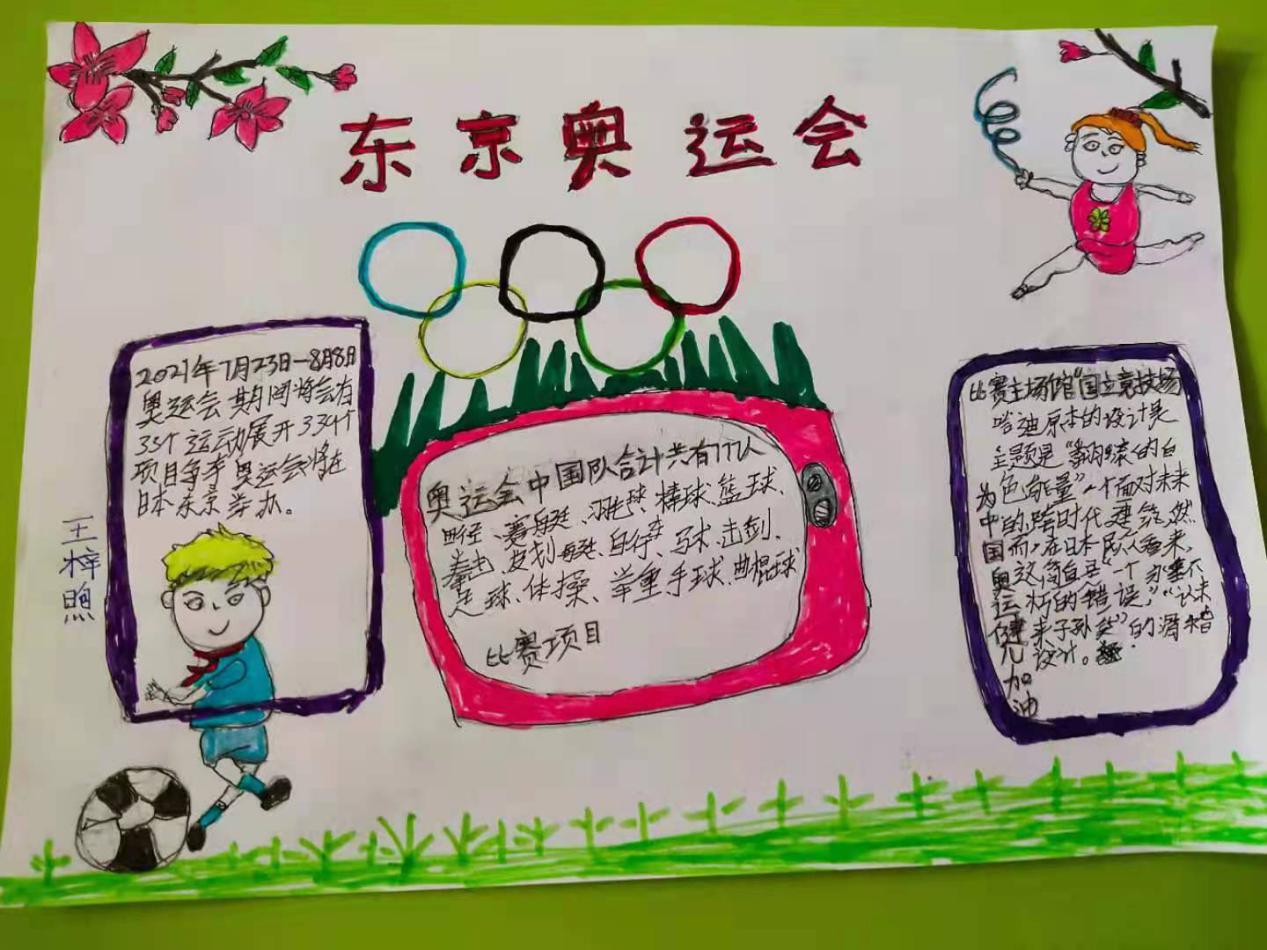 东京奥运会
2021年7月23日—8月8日
奥运会期间将会有
33个运动展开334个
项目争夺奥运会将在
日本东京举办。
王梓煦
奥运会中国队合计共有777人
田径、赛艇、球、棒球、篮球、
拳击、皮划艇、自行车、马术、击剑、
足球、体操、举重、手球、曲棍球
比赛项目
比赛主场馆“国立竞技场
哈迪原本的设计是
主题是“的白
色能量”一个面对未来
的跨时代建筑,然
而,在日本民人看来,
这简直是“一个
的错误,”“让未
来子孙笑”的滑稽
设计。
为中国奥运健儿加油